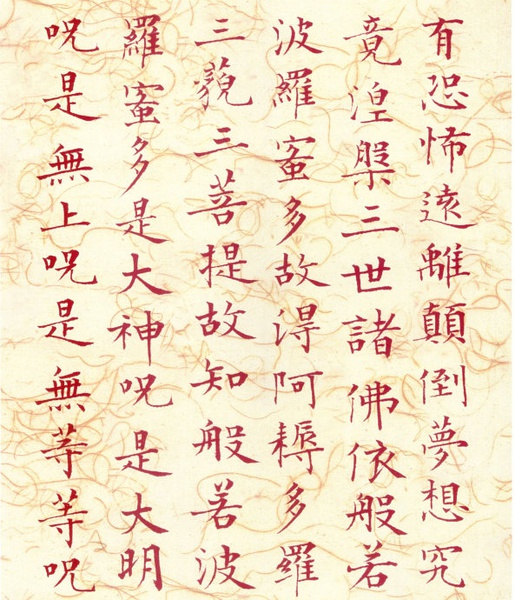 有恐怖遠離顛倒夢想究
竟涅槃三世諸佛依般若
波羅蜜多故得阿耨多羅
三藐三菩提故知般若波
羅蜜多是大神咒是大明
咒是無上咒是無等等咒